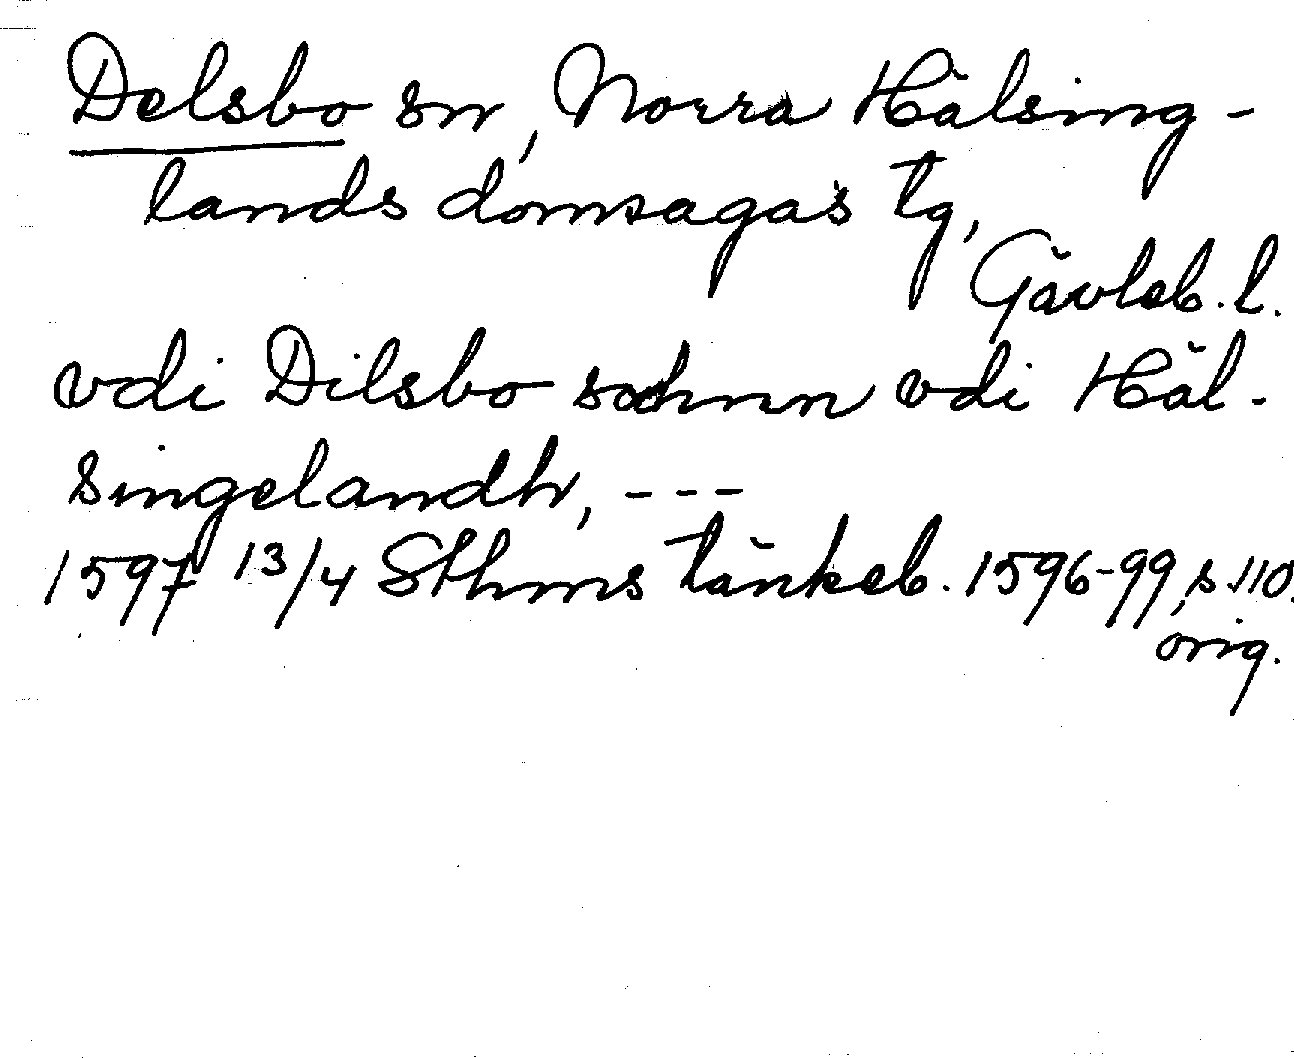 Delsbo sn, Norra Hälsing-
lands domsagas tg,
Gävleb. l.
vdi Dilsbo sochnn vdi Häl-
singelandh, ---
1597 13/4 Sthms tänkeb. 1596-99, s. 110.
orig.